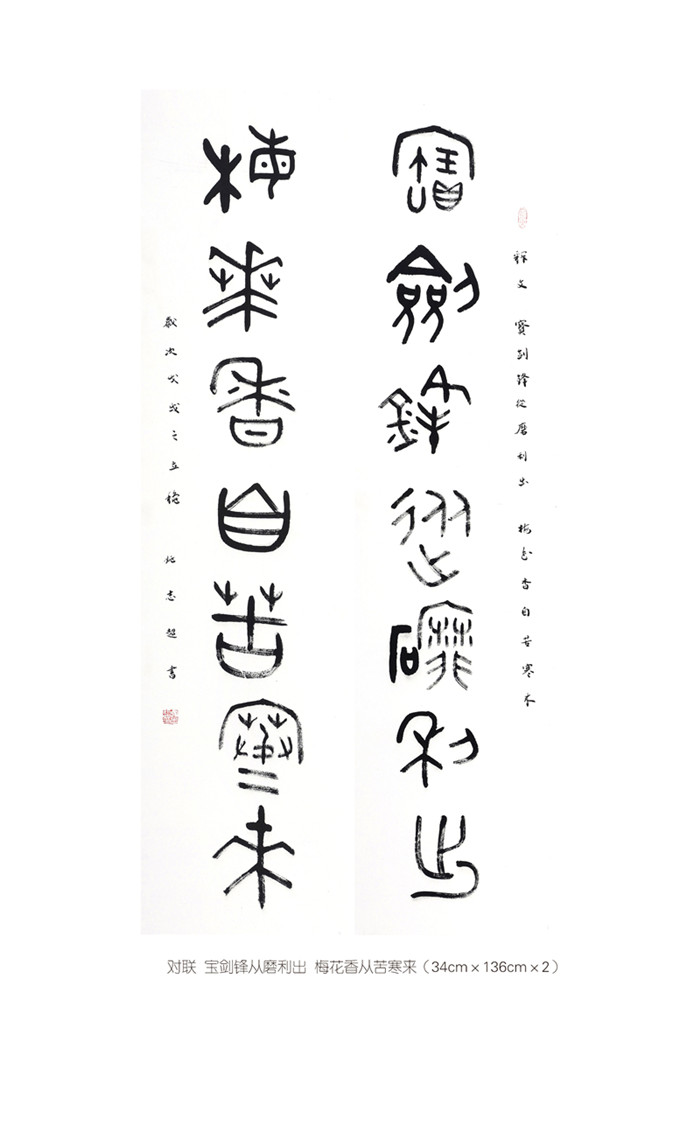 釋文 寶劍鋒從磨利出 梅花香自苦寒來
寶劍鋒從磨利出
梅華香自苦寒來
歲次戊戌之立 志超書
对联 宝剑锋从磨利出 梅花香从苦寒来（34cm×136cm×2）